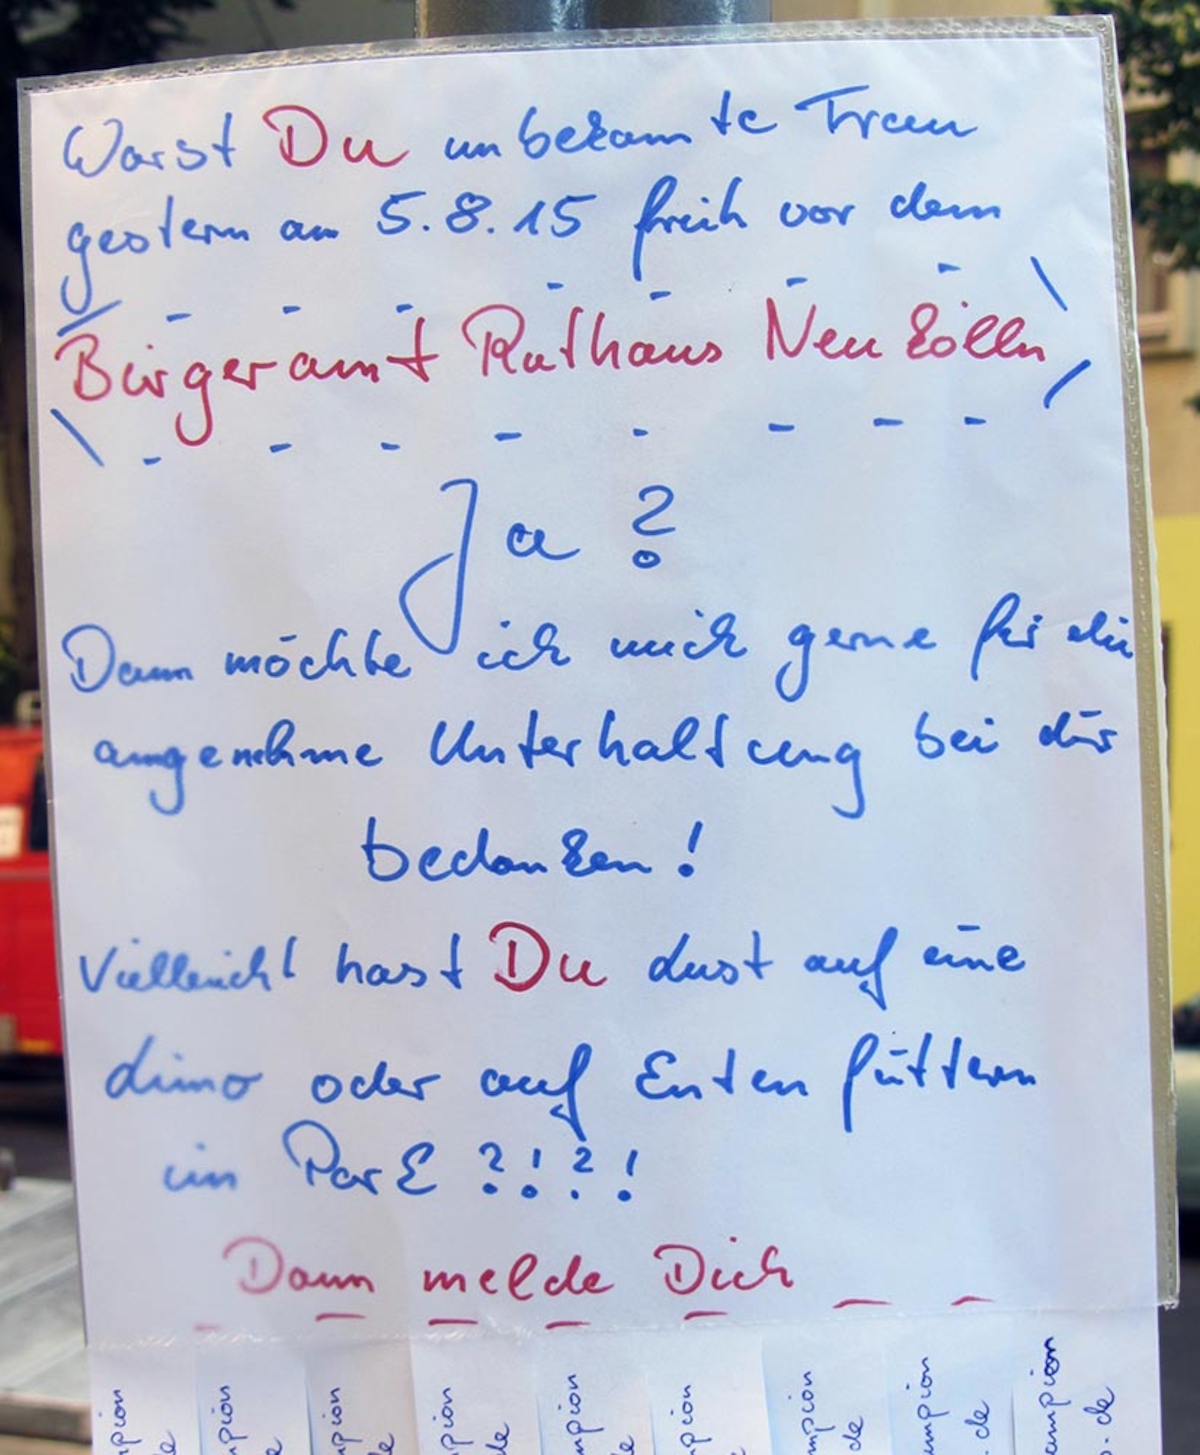 Warst Du unbekannte Frau
gestern am 5.8.15 früh vor dem
Bürgeramt Rathaus Neukölln
Ja?
Dann möchte ich mich gerne für die
angenehme Unterhaltung bei dir
bedanken!
Vielleicht hast Du Lust auf eine
Limo oder auf Enten füttern
im Park ?!?!
Dann melde Dich
pion
de
pion
de
pion
de
mpion
de
mpion
de
mpion
de
mpion
de
umpion
de
umpion
.de